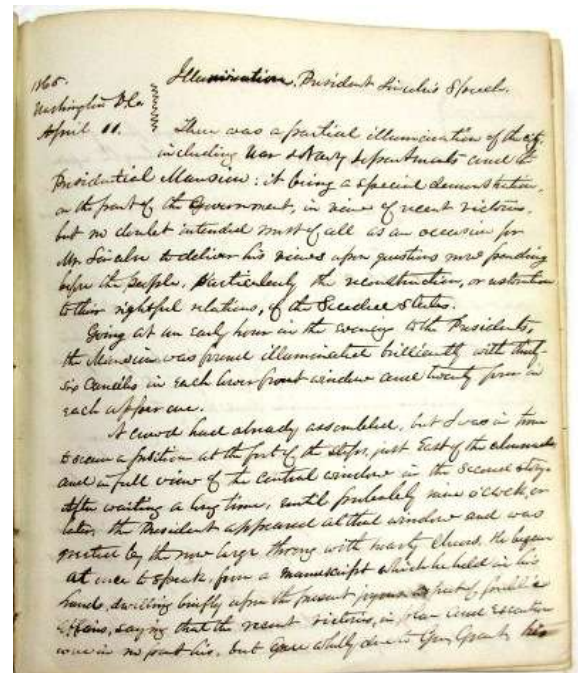 1865.
Washington D.C.
April 11.
Illumination. President Lincoln's Speech.
There was a partial illumination of the city,
including War & Navy Departments and the
Presidential Mansion: it being a special demonstration,
on the part of the Government, in view of recent victories,
but no doubt intended most of all as an occasion for
Mr. Lincoln to deliver his views upon questions now pending
before the people, particularly the reconstruction, or restoration
to their rightful relations, of the Seceded States.
Going at an early hour in the evening to the Presidents,
the Mansion was found illuminated brilliantly with thirty-
six candles in each lower front window and twenty four in
each upper one.
A crowd had already assembled, but I was in time
to secure a position at the foot of the steps, just East of the
and in full view of the central window in the second story.
After waiting a long time, until probably nine o'clock, or
later, the President appeared at that window and was
greeted by the now large throng with hearty cheers. He began
at once to speak, from a manuscript which he held in his
hand, dwelling briefly upon the present joyous aspect of public
affairs, saying that the recent victories, in plan and execution
were in no part his, but were wholly due to Gen. Grant, his